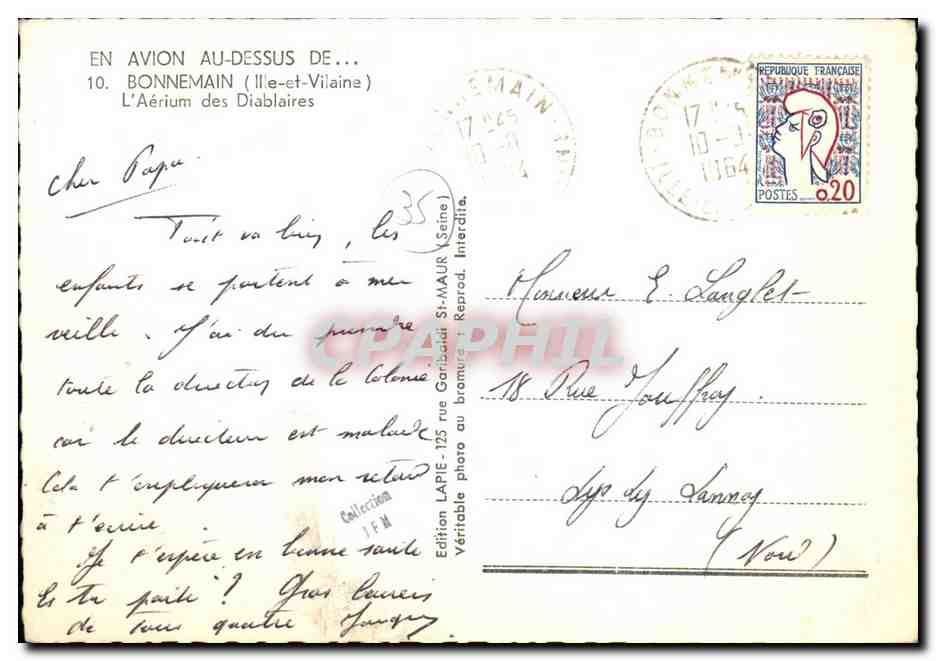 EN AVION AU-DESSUS DE...
10. BONNEMAIN (Ille-et-Vilaine)
L'Aérium des Diablaires
Cher Papa
Tout va bien, les
enfants se portent à mer
veille. J'ai du prendre
toute la direction de la Colonie
car le directeur est malade
Cela t'expliquera mon retard
à t'écrire.
Je t'espère en bonne santé
Es tu parti ? Gros baisers
de tous quatre Jacques
35
Collection
J F M
Edition LAPIE - 125 rue Garibaldi St-MAUR (Seine)
Véritable photo au bromure : Reprod. Interdite.
BONNEMAIN
17 H 45
1964
REPUBLIQUE FRANÇAISE
POSTES 0,20
Monsieur E. Langlet
18 Rue Jouffroy.
Lys lez Lannoy
(Nord)
CPAPHIL